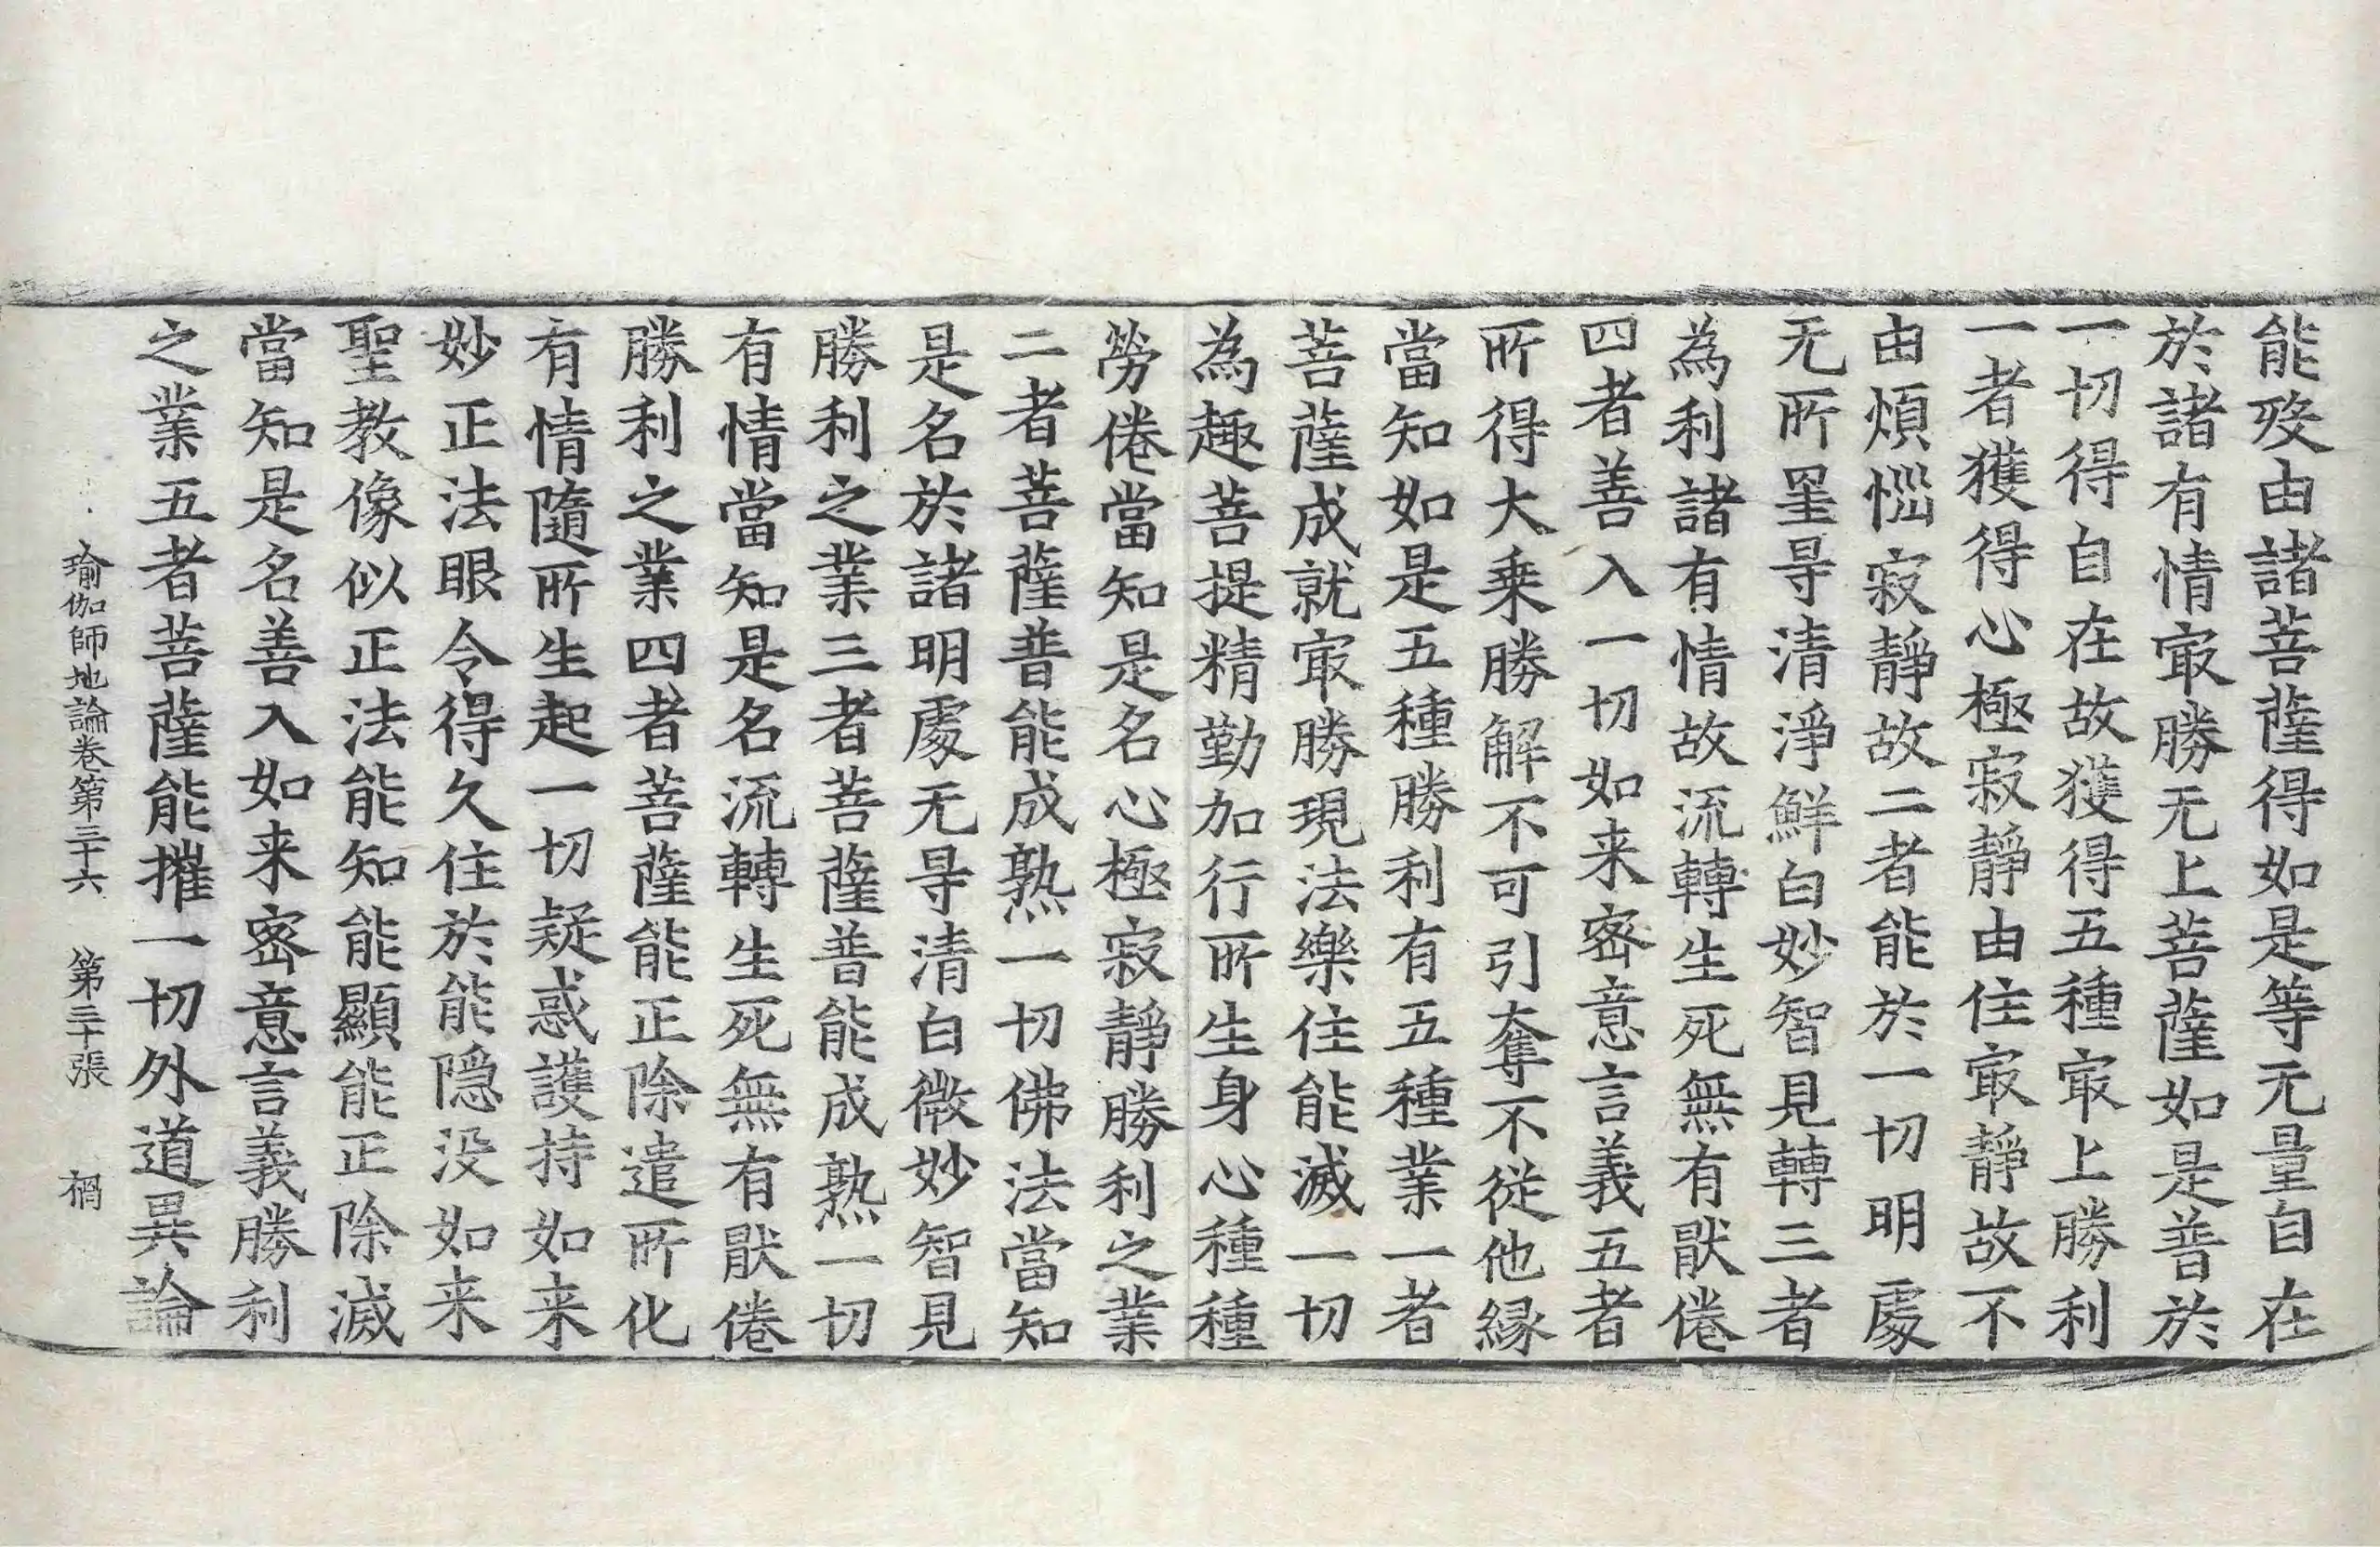 能發由諸菩薩得如是等无量自在
於諸有情㝡勝无上菩薩如是普於
一切得自在故獲得五種㝡上勝利
一者獲得心極寂靜由住㝡靜故不
由煩惱寂靜故二者能於一切明處
无所罣㝵清淨鮮白妙智見轉三者
為利諸有情故流轉生死無有猒倦
四者善入一切如来密意言義五者
所得大乗勝解不可引奪不從他縁
當知如是五種勝利有五種業一者
菩薩成就㝡勝現法樂住能滅一切
為趣菩提精勤加行所生身心種種
勞倦當知是名心極寂靜勝利之業
二者菩薩普能成熟一切佛法當知
是名於諸明處无㝵清白微妙智見
勝利之業三者菩薩普能成熟一切
有情當知是名流轉生死無有猒倦
勝利之業四者菩薩能正除遣所化
有情隨所生起一切疑惑護持如来
妙正法眼令得久住於能隠没如来
聖教像似正法能知能顯能正除滅
當知是名善入如来密意言義勝利
之業五者菩薩能摧一切外道異論
瑜伽師地論卷第三十六　第三十張